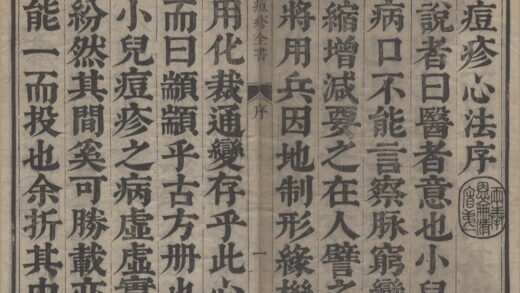 痘疹心法序
說者曰醫者意也小兒
病口不能言察脉窮變
縮增減要之在人譬之
將用兵因地制形緣
痘疹全書
序
一
用化裁通變存乎此心
而曰顓顓乎古方册也
小兒痘疹之病虛虛實
紛然其間奚可勝載亦
能一而投也余折其中